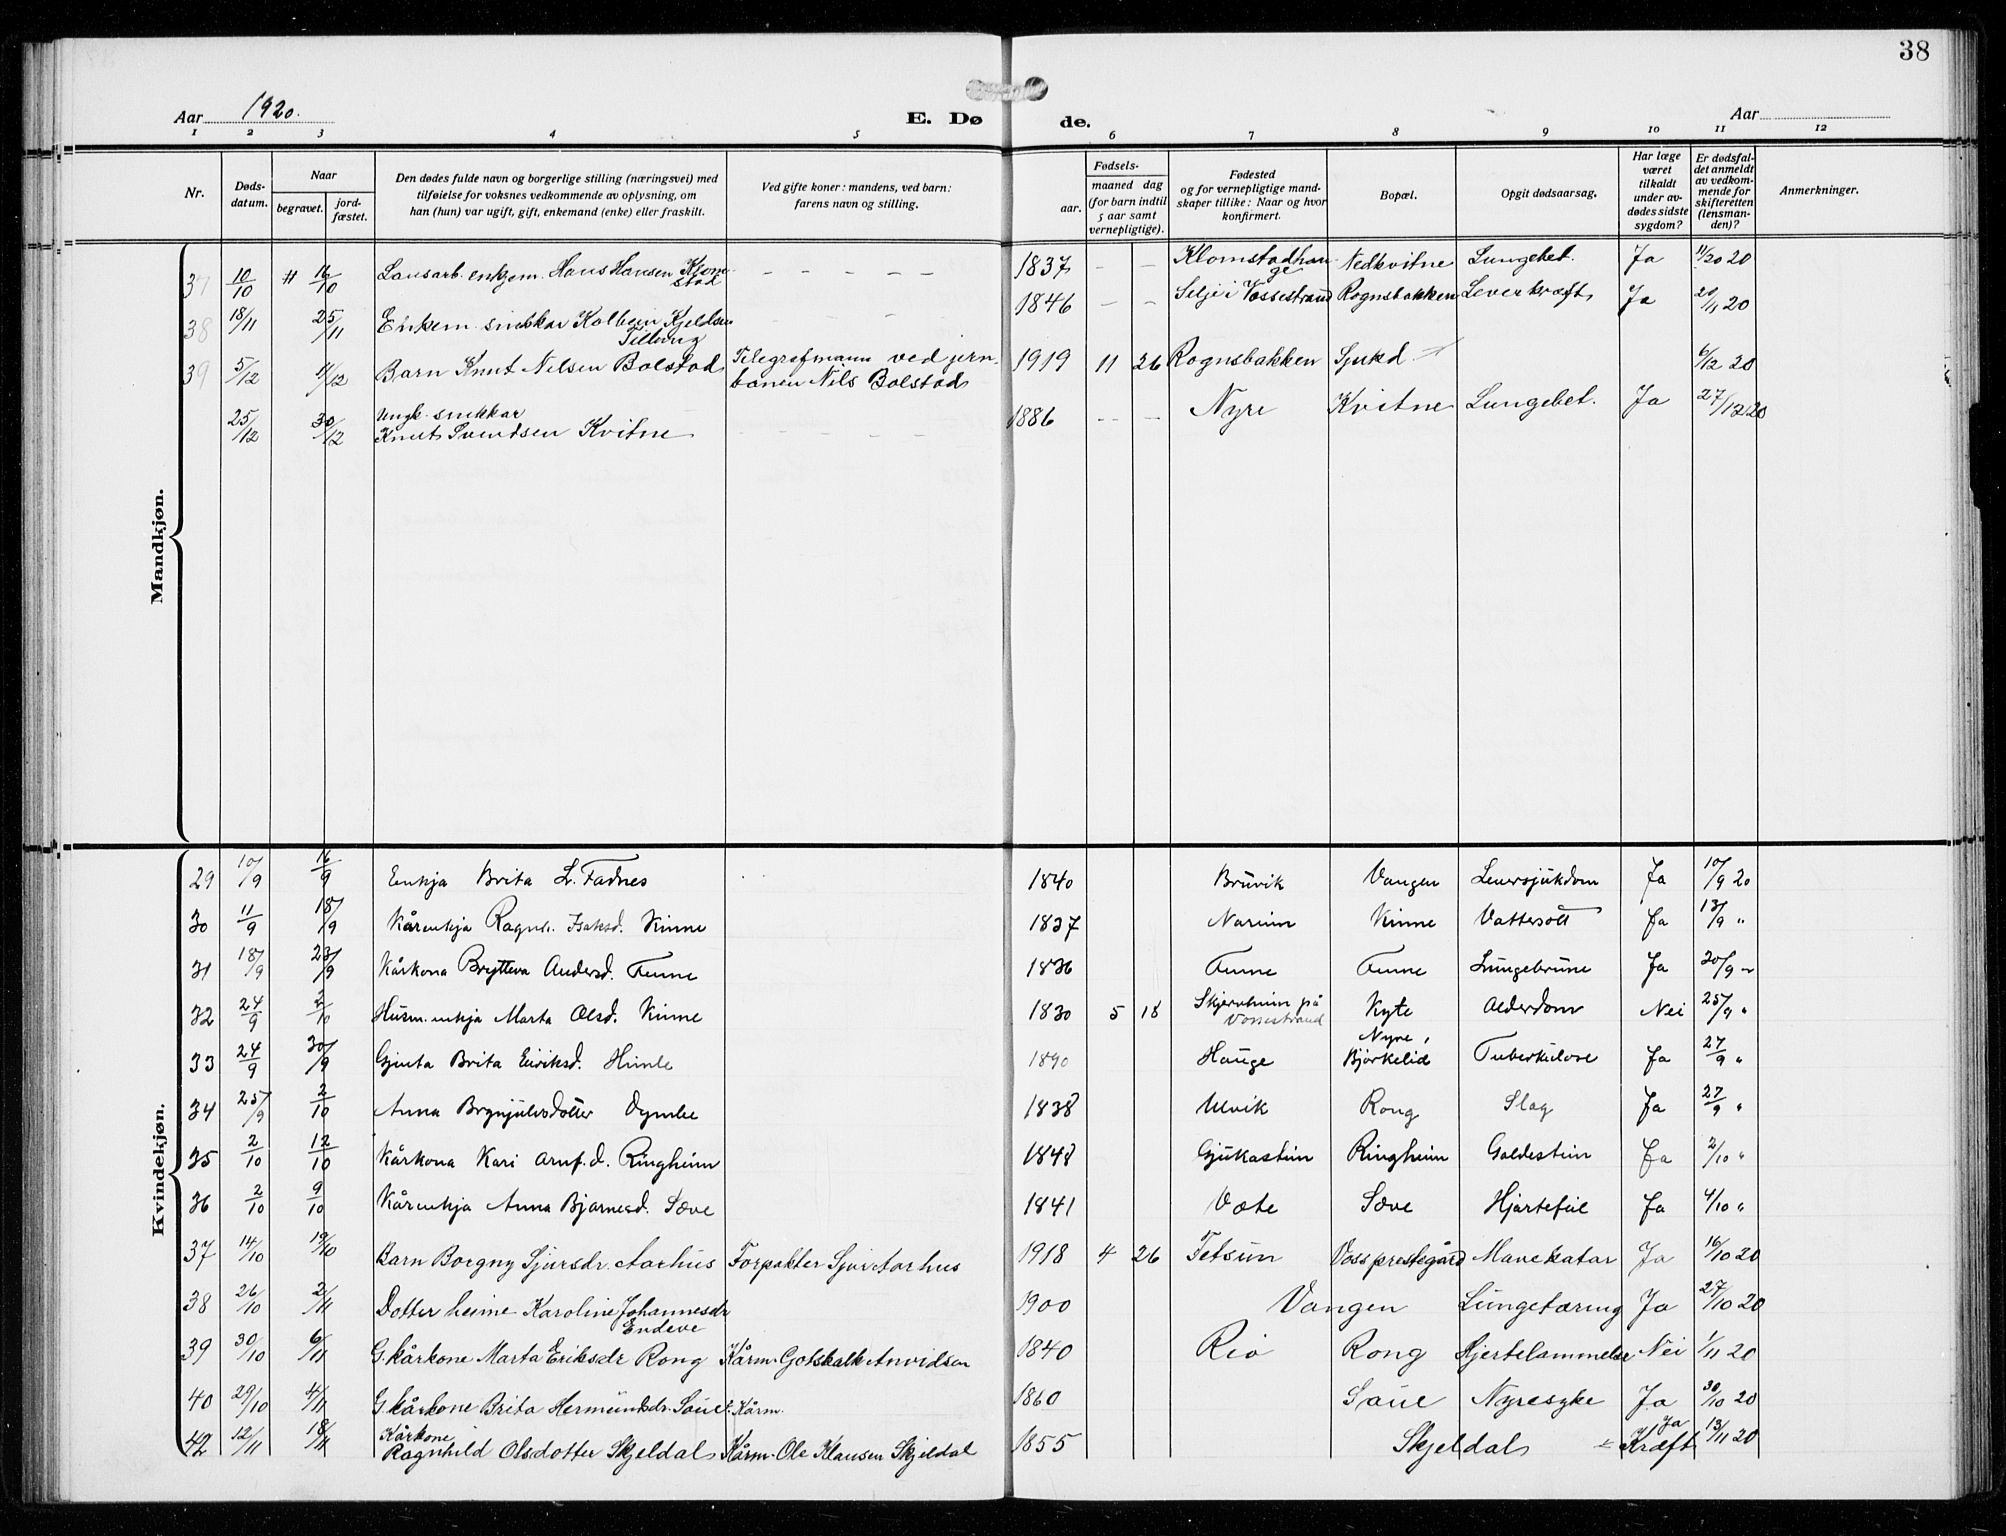 38
Aar 1920. E. Døde. Aar
1 2 3 4 5 6 7 8 9 10 11 12
Nr. Døds-datum. Naar begravet. jord-fæstet. Den dødes fulde navn og borgerlige stilling (næringsvei) med tilføielse for voksnes vedkommende av oplysning, om han (hun) var ugift, gift, enkemand (enke) eller fraskilt. Ved gifte koner: mandens, ved barn: farens navn og stilling. Fødsels- aar. maaned dag (for barn indtil 5 aar samt vernepligtige). Fødested og for vernepligtige mand-skaper tillike: Naar og hvor konfirmert. Bopæl. Opgit dødsaarsag. Har læge været tilkaldt under av-dødes sidste sygdom? Er dødsfal-det anmeldt av vedkom-mende for skifteretten (lensman-den)? Anmerkninger.
Mandkjøn.
37 10/10 # 16/10 Lausarb. enkjem. Hans Hansen Klomstad – – – – – 1837 – – Klomstadhauge Nedkvitne Lungebet. Ja 11/20 20
38 18/11 25/11 Enkem. snikkar Kolbein Kjeldsen Tillung – – – – – 1846 – – Selje i Vossestrand Rognsbakken Leverkræft Ja 20/11 20
39 5/12 11/12 Barn Knut Nilsen Bolstad Telegrafmann ved jernbanen Nils Bolstad 1919 11 26 Rognsbakken Sjukd 6/12 20
25/12 30/12 Ungk. snikkar Knut Svendsen Kvitne – – – – – 1886 – – Nyre Kvitne Lungebet. Ja 27/12 20
Kvindekjøn.
29 10/9 16/9 Enkja Brita L. Fadnes 1840 Bruvik Vangen Leversjukdom Ja 10/9 20
30 11/9 18/9 Kårenkja Ragnh. Isaksd. Kinne 1837 Narium Kinne Vattersott Ja 13/9 "
31 18/9 23/9 Kårkona Brytteva Andersd. Finne 1836 Finne Finne Lungebrune Ja 20/9 "
32 24/9 2/10 Husm. enkja Marta Olsd. Kinne 1830 5 18 Skjerveheim på Vossestrand Kyte Alderdom Nei 25/9 "
33 24/9 30/9 Gjenta Brita Eiriksd. Himle 1890 Hauge Nyre, Bjørkelid Tuberkulose Ja 27/9 "
34 25/9 2/10 Anna Brynjulvsdotter Dymbe 1838 Ulvik Rong Slag Ja 27/9 "
35 2/10 12/10 Kårkona Kari Arnf.d. Ringheim 1848 Gjukastein Ringheim Galdestein Ja 2/10 "
36 2/10 9/10 Kårenkja Anna Bjarnesd. Sæve 1841 Væte Sæve Hjartefeil Ja 4/10 "
37 14/10 19/10 Barn Borgny Sjursdr. Aarhus Forpakter Sjur Aarhus 1918 4 26 Tetsun Voss prestegård Mavekatar Ja 16/10 20
38 26/10 2/11 Dotter heime Karoline Johannesdr Endeve 1900 Vangen Lungetæring Ja 27/10 20
39 30/10 6/11 G. kårkone Marta Eriksdr Rong Kårm. Gotskalk Anvidsen 1840 Rio Rong Hjertelammelse Nei 1/11 20
40 29/10 4/11 G. kårkone Brita Hermundsdr. Saue Kårm. 1860 Saue Nyresyke Ja 30/10 20
42 12/11 18/11 Kårkone Ragnhild Olsdotter Skjeldal Kårm. Ole Klausen Skjeldal 1855 Skjeldal Kræft Ja 13/11 20